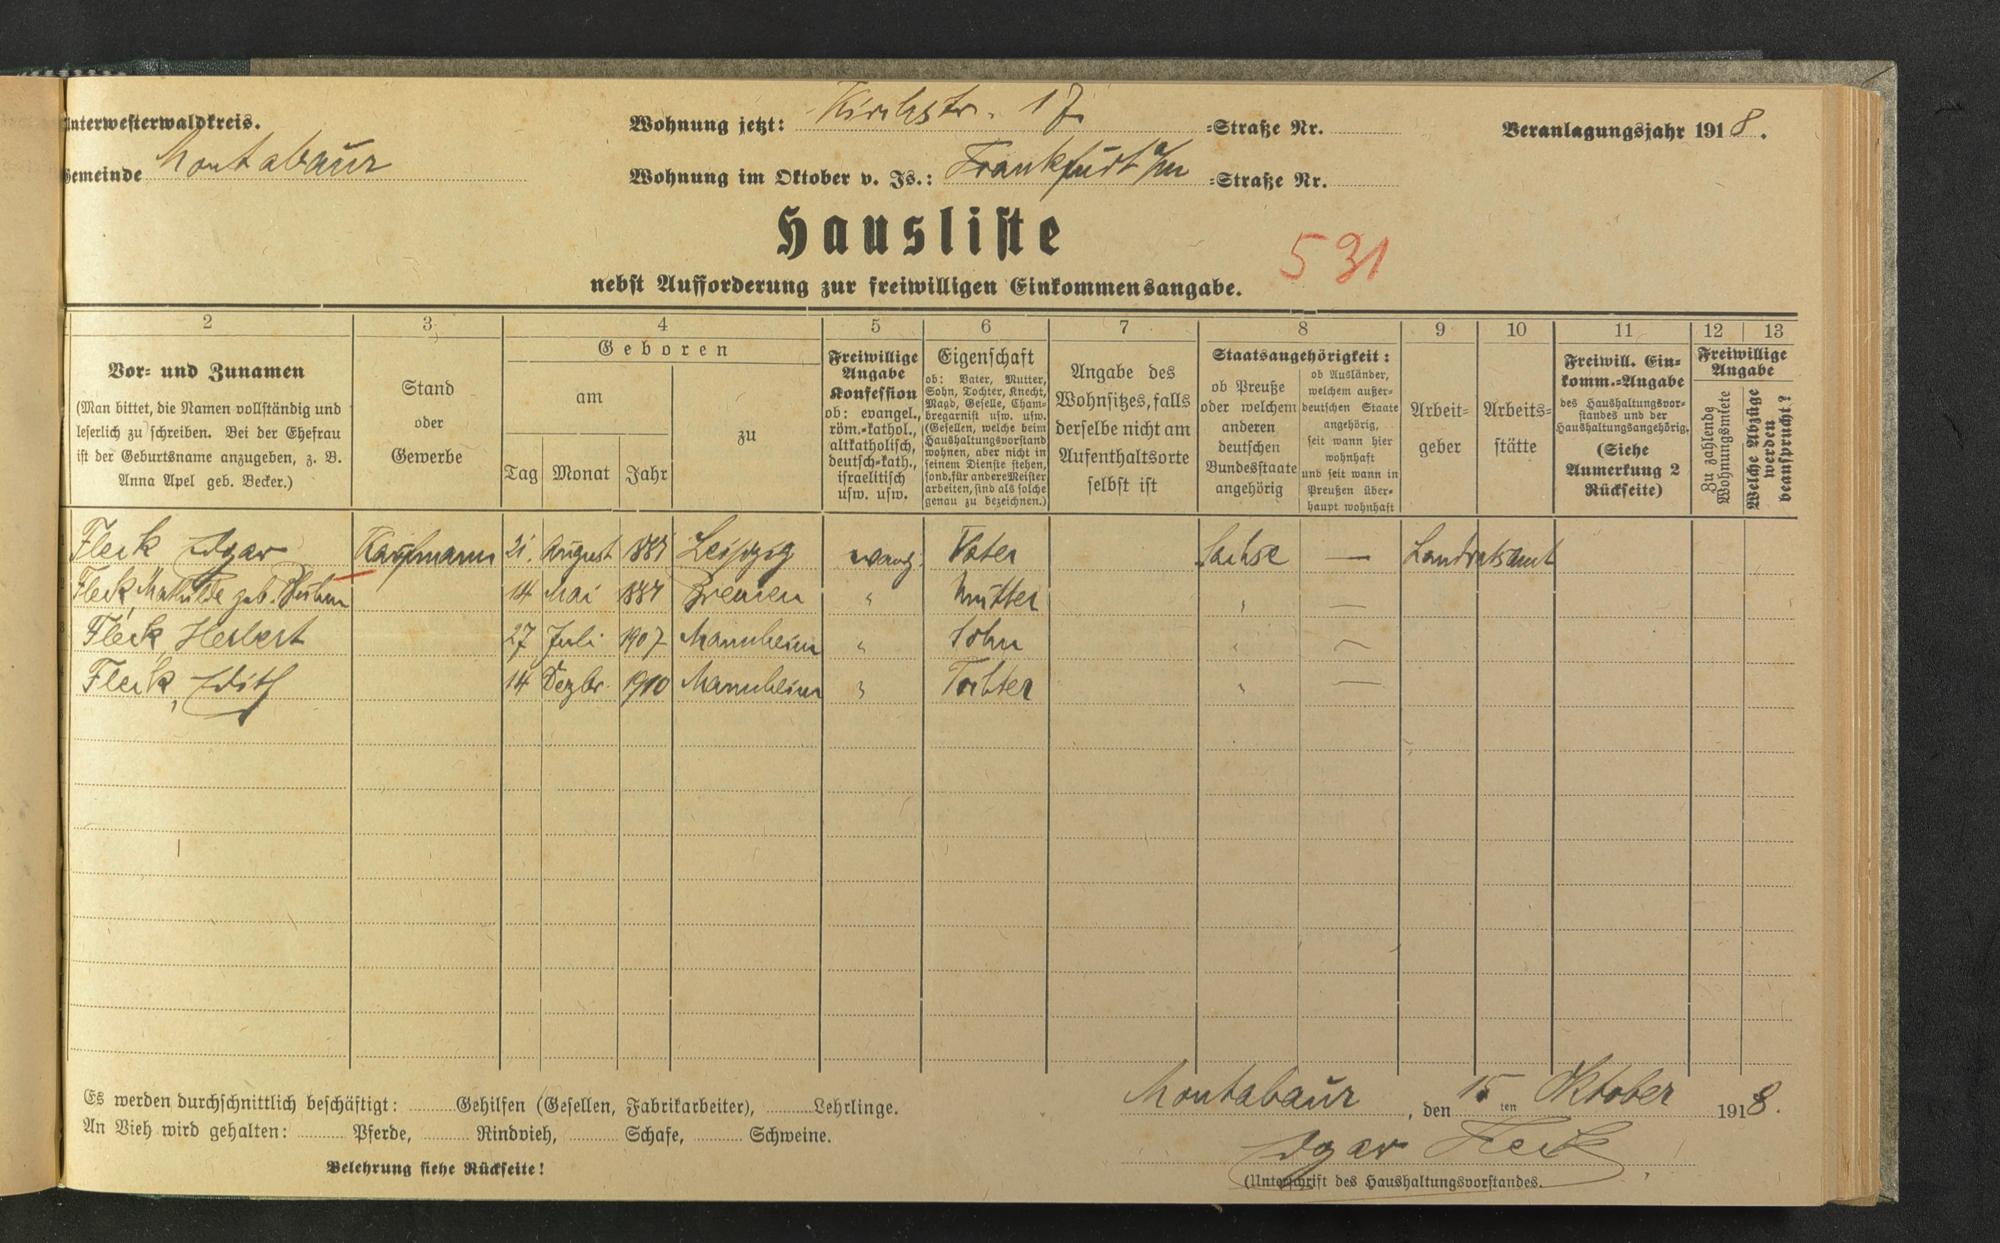 Unterwesterwaldkreis.
Gemeinde Montabaur
Wohnung jetzt: Kirchstr. 17 =Straße Nr.
Wohnung im Oktober v. Js.: Frankfurt a/m =Straße Nr.
Veranlagungsjahr 1918.
Hausliste
531
nebst Aufforderung zur freiwilligen Einkommensangabe.
2 3 4 5 6 7 8 9 10 11 12 13
Vor- und Zunamen
(Man bittet, die Namen vollständig und
leserlich zu schreiben. Bei der Ehefrau
ist der Geburtsname anzugeben, z. B.
Anna Apel geb. Becker.)
Stand
oder
Gewerbe
Geboren
am
Tag Monat Jahr
zu
Freiwillige
Angabe
Konfession
ob: evangel.,
röm.-kathol.,
altkatholisch,
deutsch-kath.,
israelitisch
usw. usw.
Eigenschaft
ob: Vater, Mutter,
Sohn, Tochter, Knecht,
Magd, Geselle, Cham-
bregarnist usw. usw.
(Gesellen, welche beim
Haushaltungsvorstand
wohnen, aber nicht in
seinem Dienste stehen,
sond. für andere Meister
arbeiten, sind als solche
genau zu bezeichnen.)
Angabe des
Wohnsitzes, falls
derselbe nicht am
Aufenthaltsorte
selbst ist
Staatsangehörigkeit:
ob Preuße
oder welchem
anderen
deutschen
Bundesstaate
angehörig
ob Ausländer,
welchem außer-
deutschen Staate
angehörig,
seit wann hier
wohnhaft
und seit wann in
Preußen über-
haupt wohnhaft
Arbeit-
geber
Arbeits-
stätte
Freiwill. Ein-
komm.-Angabe
des Haushaltungsvor-
standes und der
Haushaltungsangehörig.
(Siehe
Anmerkung 2
Rückseite)
Freiwillige
Angabe
Zu zahlende
Wohnungsmiete
Welche Abzüge
werden
beansprucht?
Fleck Edgar Kaufmann 21. August 1881 Leipzig evang. Vater Sachse — Landratsamt
Fleck, Mathilde geb. 14 Mai 1881 Bremen " Mutter " —
Fleck, Herbert 27 Juli 1907 Mannheim " Sohn " —
Fleck, Edith 14 Dezbr. 1910 Mannheim " Tochter " —
Es werden durchschnittlich beschäftigt: Gehilfen (Gesellen, Fabrikarbeiter), Lehrlinge.
An Vieh wird gehalten: Pferde, Rindvieh, Schafe, Schweine.
Belehrung siehe Rückseite!
Montabaur, den 15ten Oktober 1918.
Edgar Fleck
(Unterschrift des Haushaltungsvorstandes.